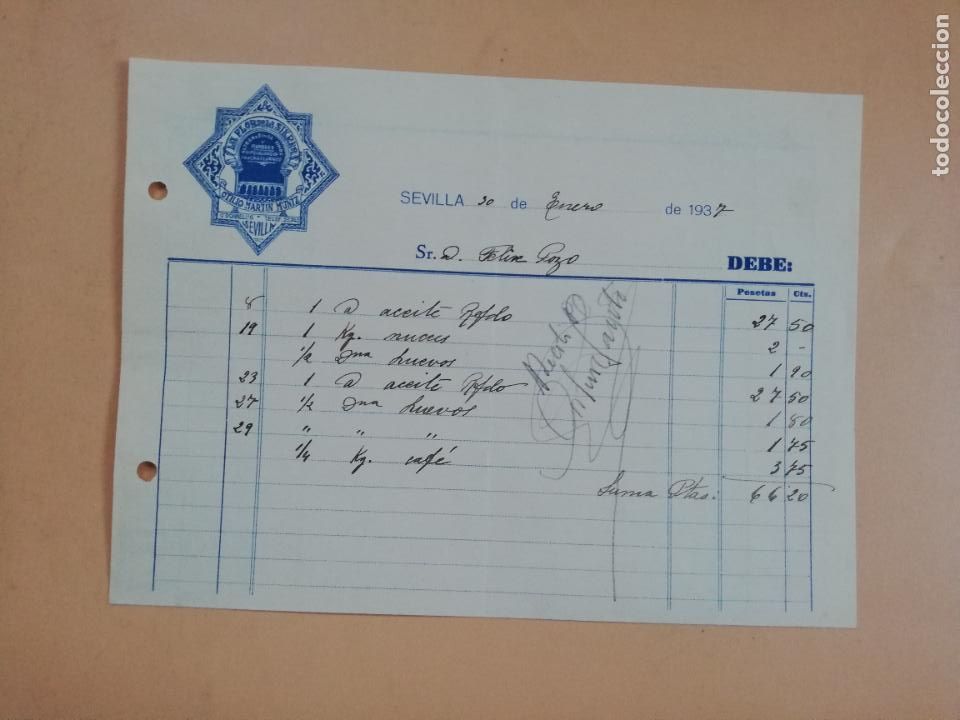 LA FLOR DE LA SIERPE
OTILIO MARTIN MUÑIZ
SEVILLA
SEVILLA 30 de Enero de 1937
Sr. D. Felix Pozo DEBE:
Pesetas Cts.
8 1 @ aceite Rgfdo 27 50
19 1 Kg. nueces 2 -
1/2 Dna huevos 1 90
23 1 @ aceite Rgfdo 27 50
27 1/2 Dna huevos 1 80
29 " " " 1 75
1/4 Kg. café 3 75
Suma Ptas. 66 20
todocoleccion